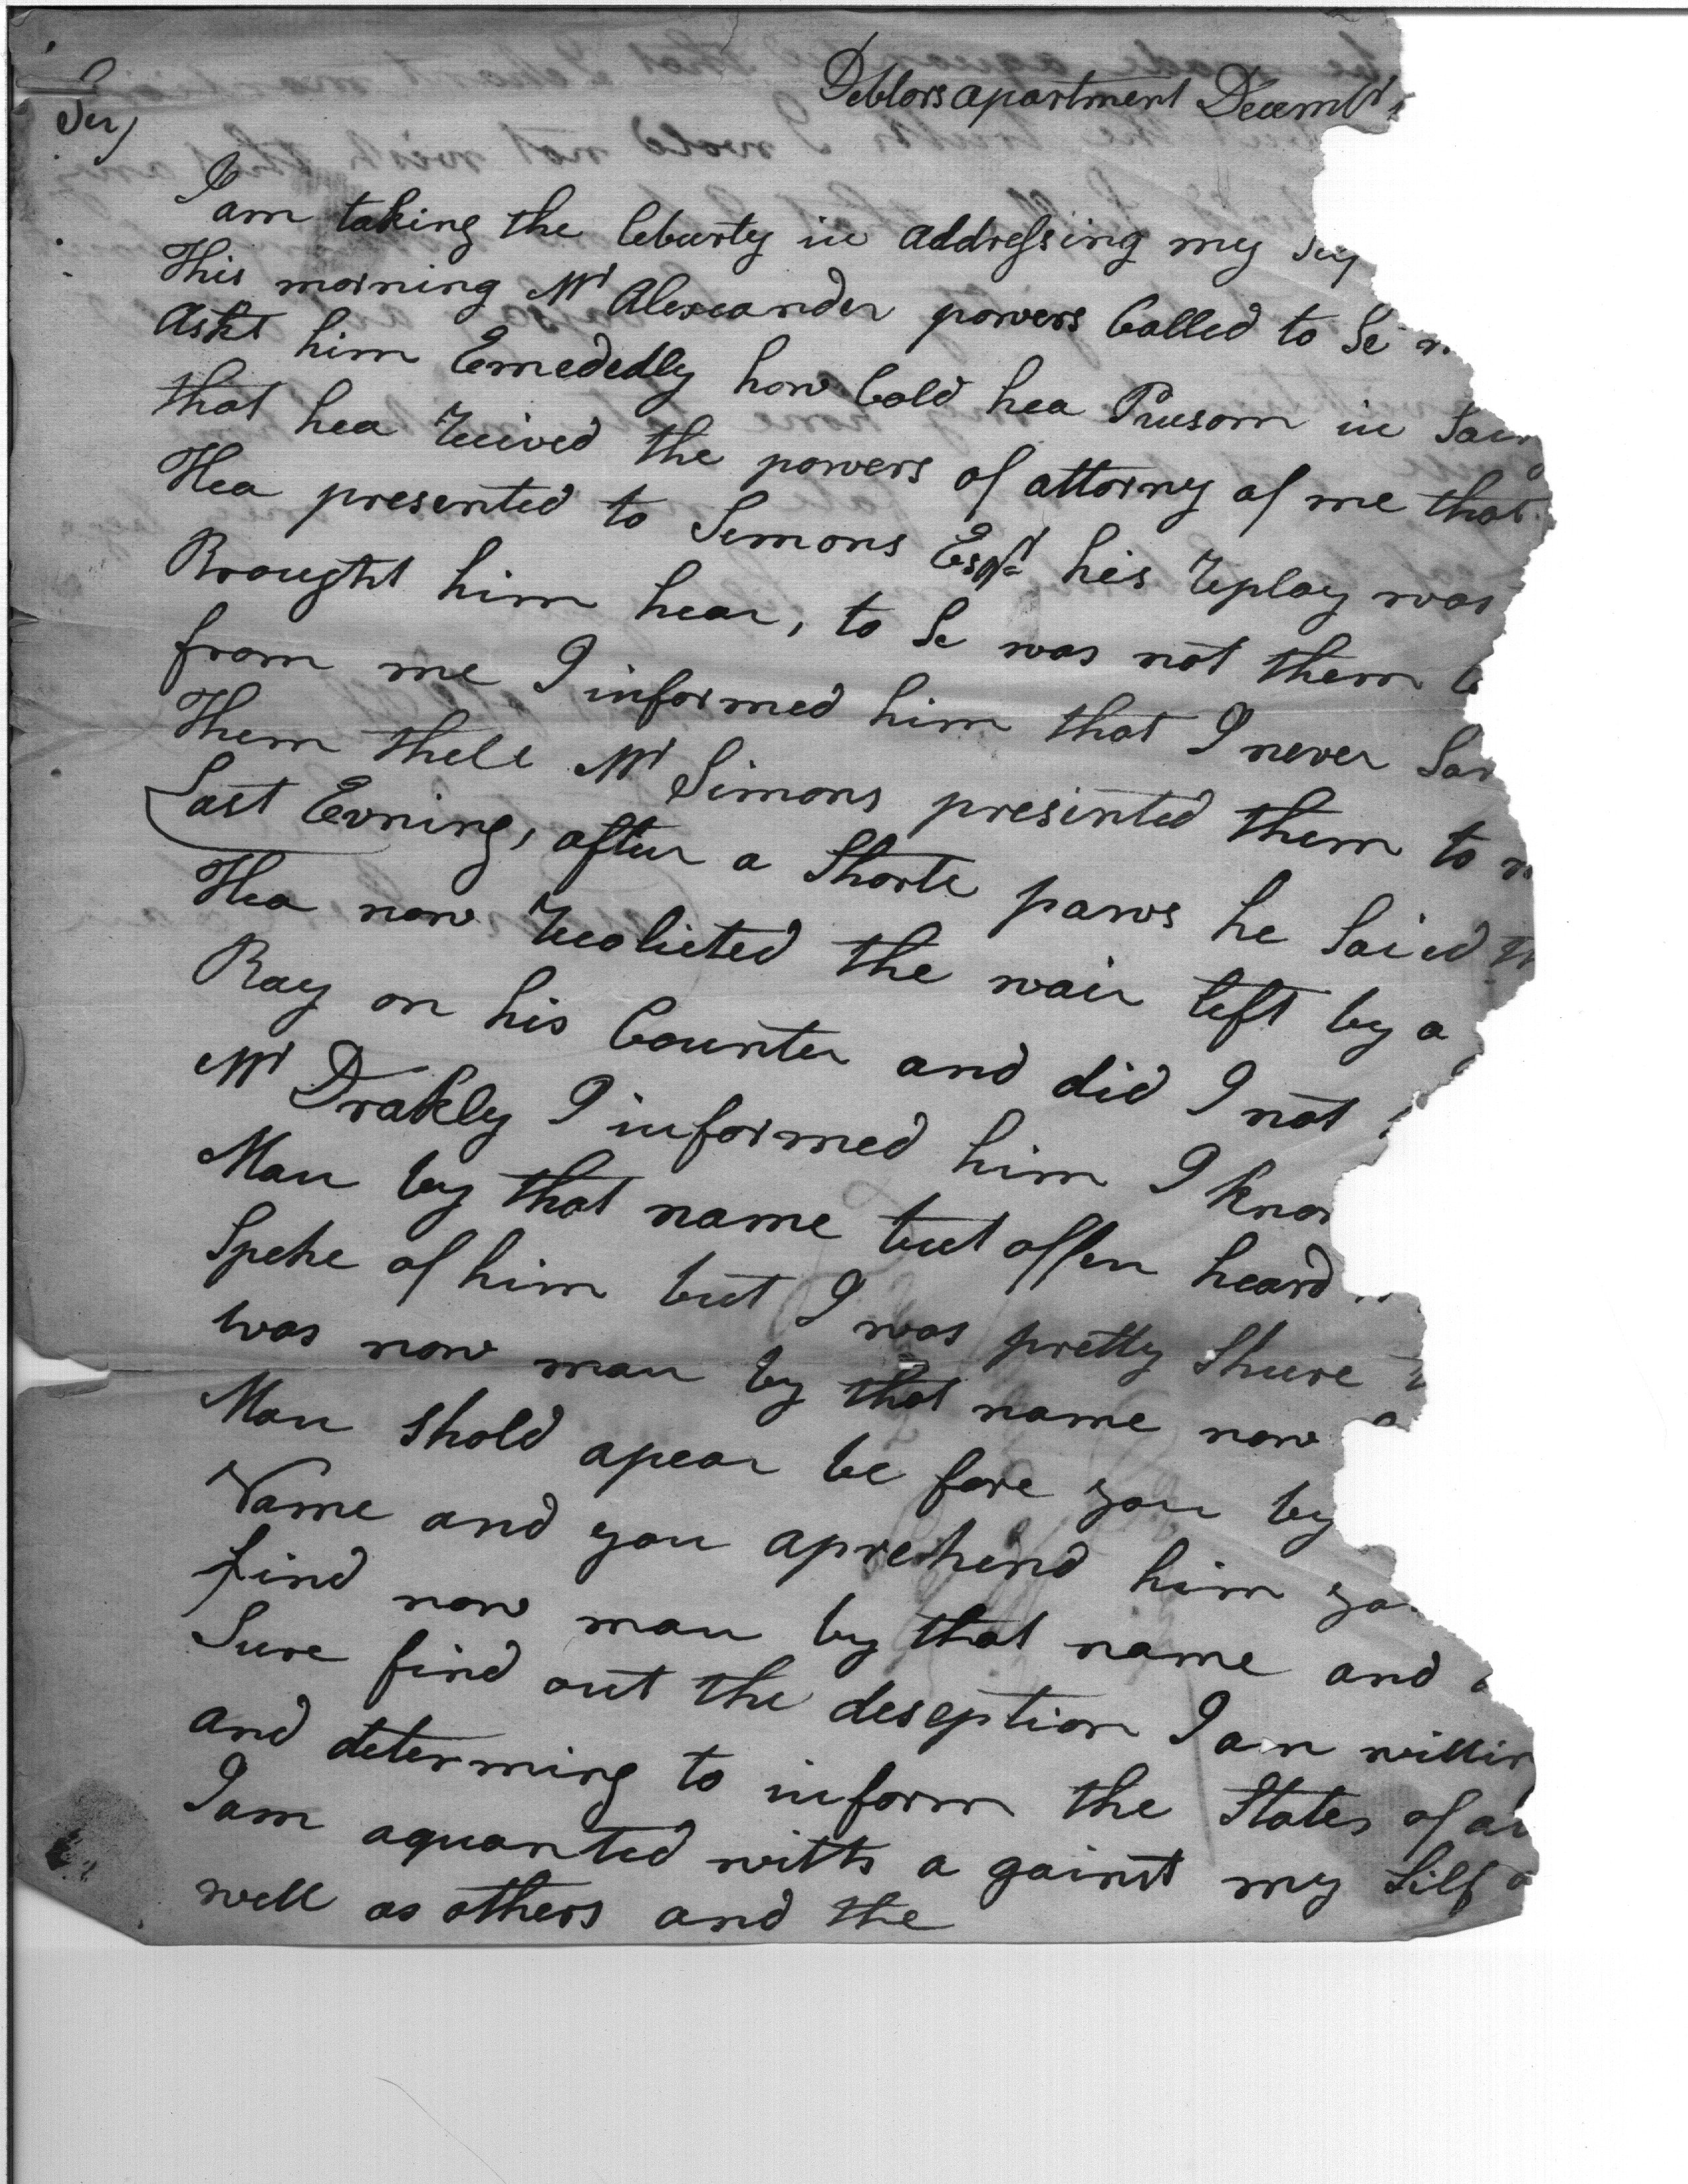 Debtors apartment Decembr
Sir,
I am taking the leburty in addressing my
This morning Mr Alexander powers Called to Se
Askt him Emededly how Cold hea Preesom in
that hea reeived the powers of attorny of me that
Hea presented to Semons Esqr his replay was
Brought him hear, to Se was not them
from me I informed him that I never
Them thele Mr Simons presinted them to
Last Evning, after a Shorte paws he Saied
Hea now recolicted the wair left by a
Ray on his Counter and did I not
Mr Drakly I informed him I
Man by that name but offen heard
Speke of him but I was pretty Shure
was now man by that name now
Man Shold apear be fore you by
Name and you aprehend him
find now man by that name and
Sure find out the deseption I am
and determing to inform the States of
I am aquanted with a gainst my Silf
well as others and the